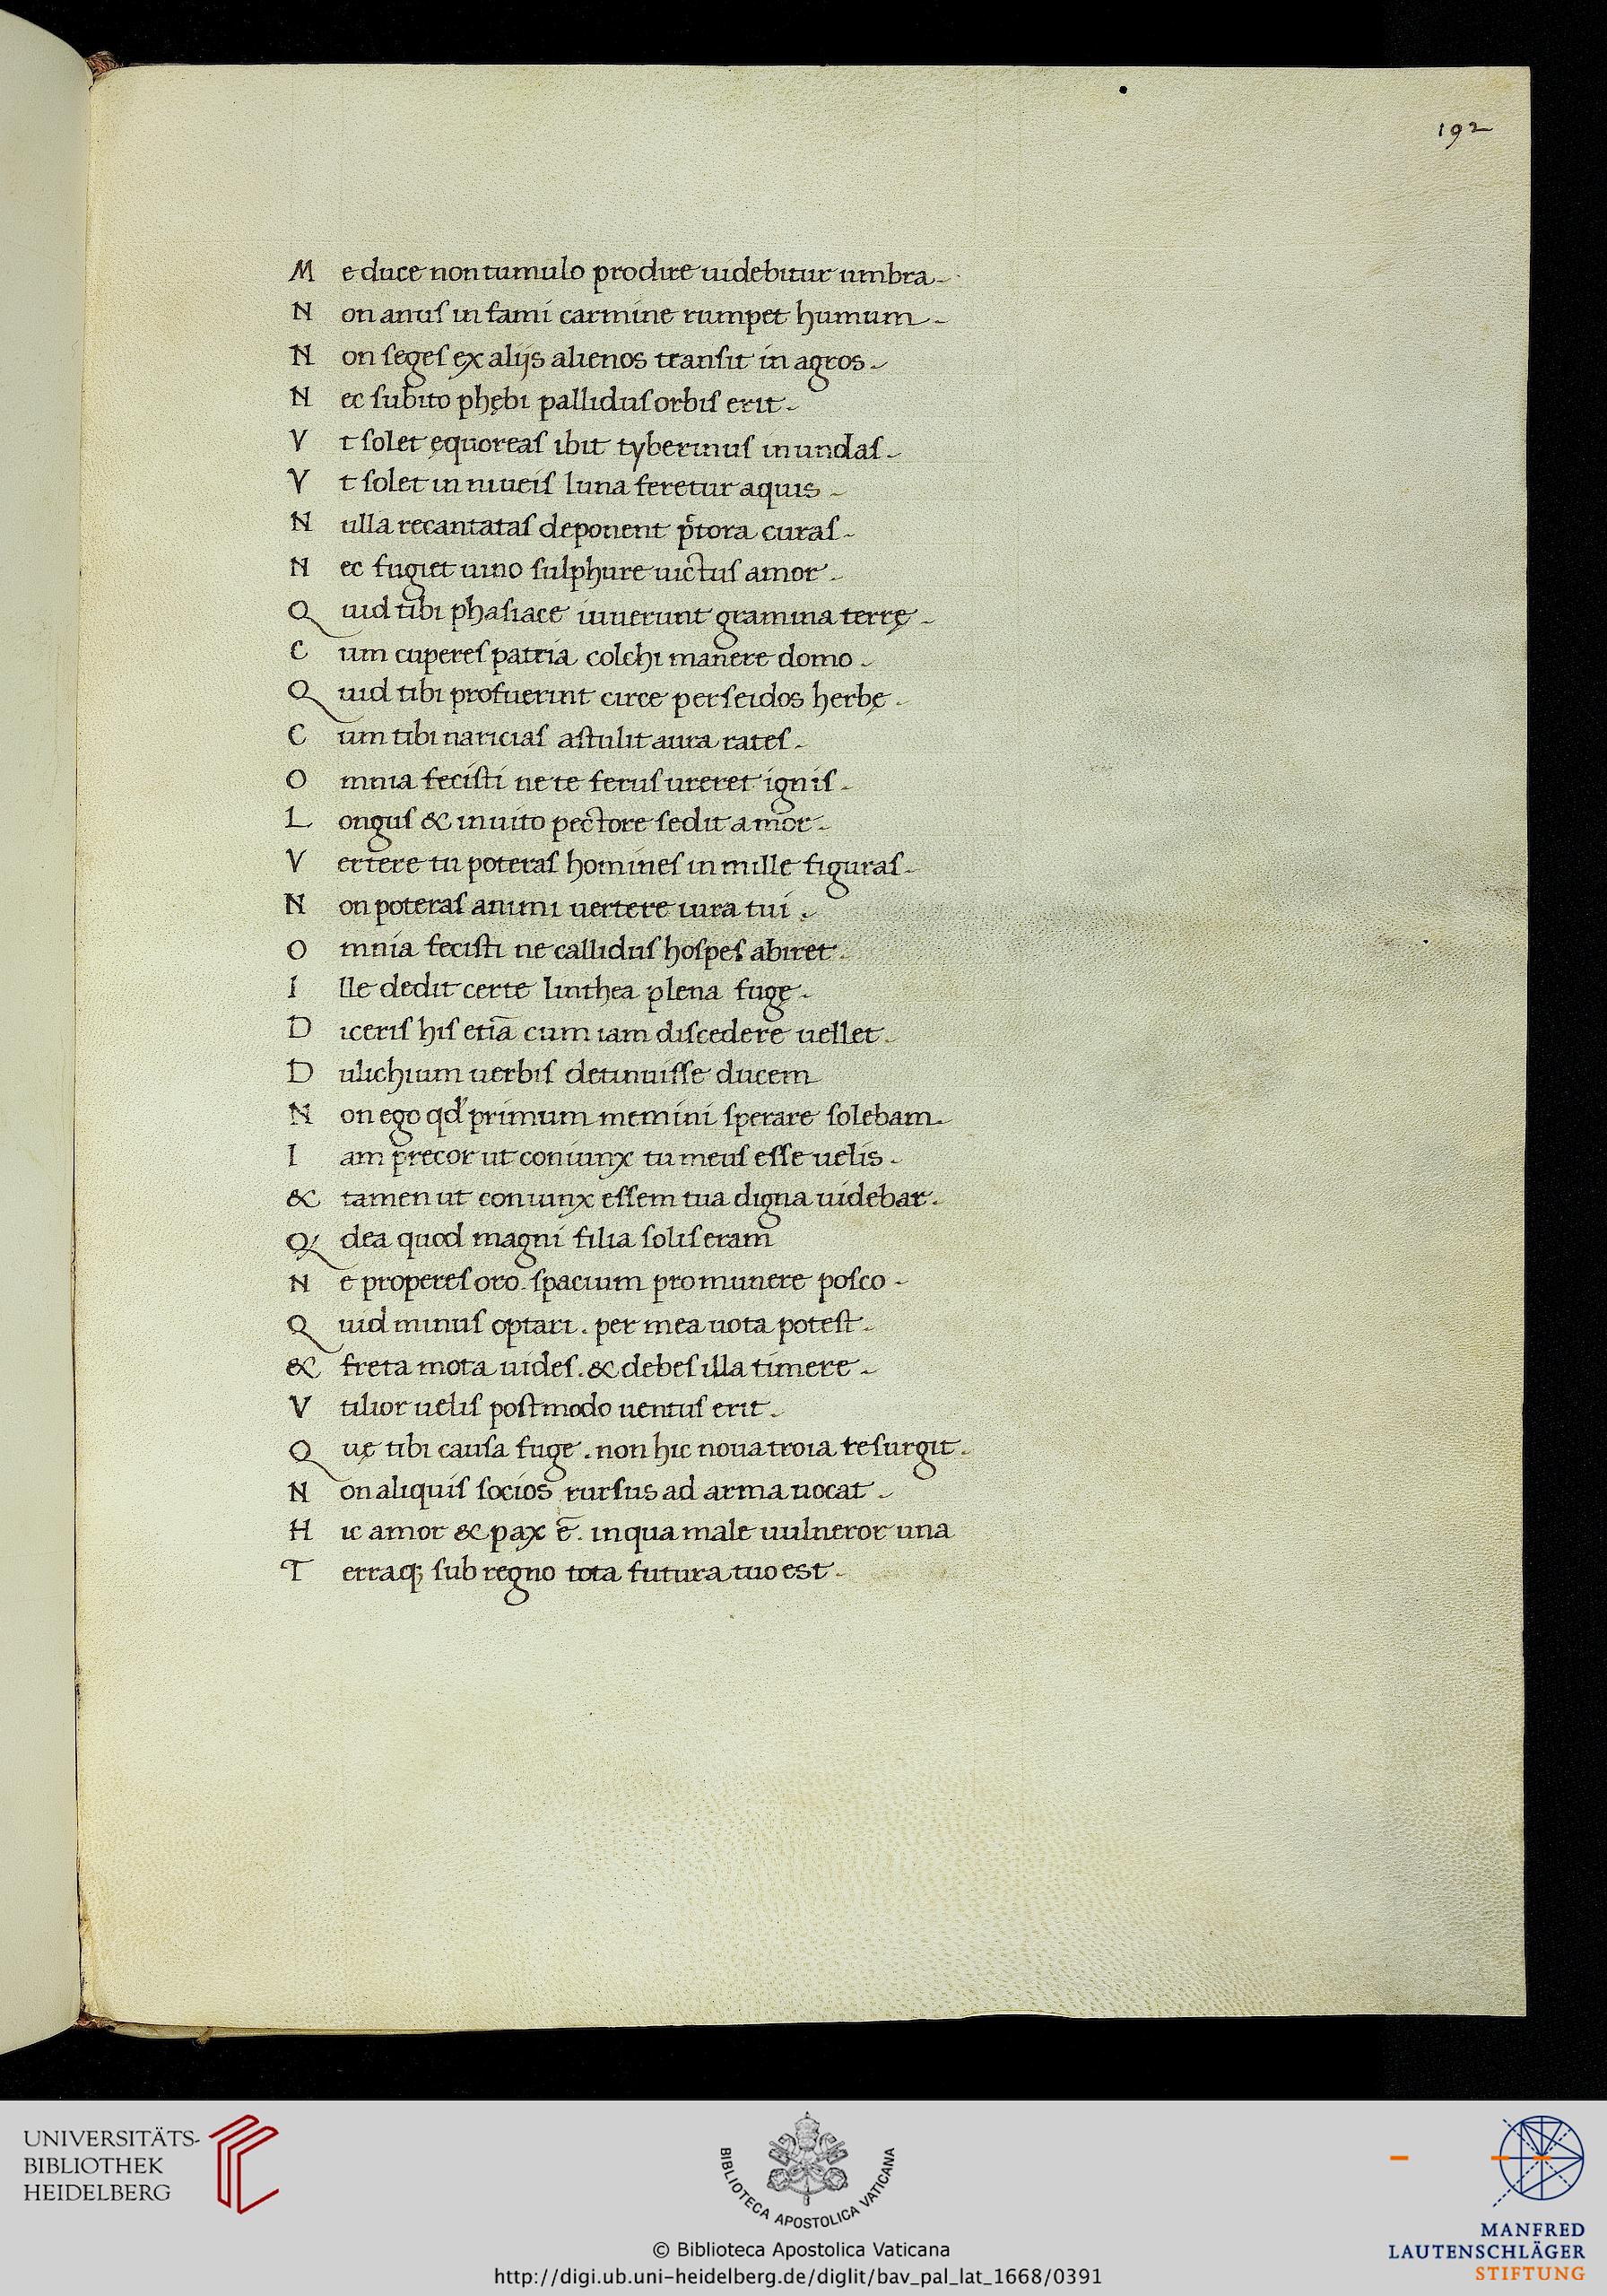 192
M e duce non tumulo prodire uidebitur umbra.
N on anus in fami carmine rumpet humum.
N on seges ex alijs alienos transit in agros.
N ec subito phębi pallidus orbis erit.
V t solet ęquoreas ibit tyberinus in undas.
V t solet in niueis luna feretur aquis.
N ulla recantatas deponent p̄tora curas.
N ec fugiet uiuo sulphure uictus amor.
Q uid tibi phasiace iuuerunt gramina terrę.
C um cuperes patria colchi manere domo.
Q uid tibi profuerint circe perseidos herbę.
C um tibi naricias astulit aura rates.
O mnia fecisti ne te ferus ureret ignis.
L ongus & inuito pectore sedit amor.
V ertere tu poteras homines in mille figuras.
N on poteras animi uertere iura tui.
O mnia fecisti ne callidus hospes abiret.
I lle dedit certe linthea plena fugę.
D iceris his etiā cum iam discedere uellet.
D ulichium uerbis detinuisse ducem
N on ego qd' primum memini sperare solebam.
I am precor ut coniunx tu meus esse uelis.
& tamen ut coniunx essem tua digna uidebar.
Q' dea quod magni filia solis eram
N e properes oro. spacium pro munere posco.
Q uid minus optari. per mea uota potest.
& freta mota uides. & debes illa timere.
V tilior uelis postmodo uentus erit.
Q uę tibi causa fuge. non hic noua troia resurgit.
N on aliquis socios rursus ad arma uocat.
H ic amor & pax ē. in qua male uulneror una
T erraq; sub regno tota futura tuo est.
UNIVERSITÄTS-
BIBLIOTHEK
HEIDELBERG
BIBLIOTECA APOSTOLICA VATICANA
© Biblioteca Apostolica Vaticana
http://digi.ub.uni-heidelberg.de/diglit/bav_pal_lat_1668/0391
MANFRED
LAUTENSCHLÄGER
STIFTUNG